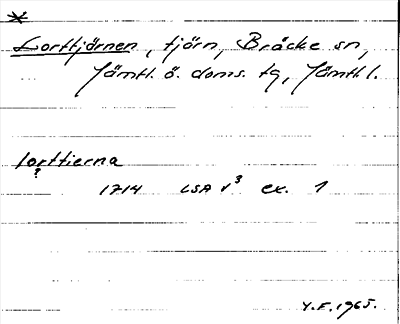 *
Lorttjärnen, tjärn, Bräcke sn,
Jämtl. ö. doms. tg, Jämtl l.
lorttierna
?
1714 LSA v³ ex. 1
Y.E. 1965.